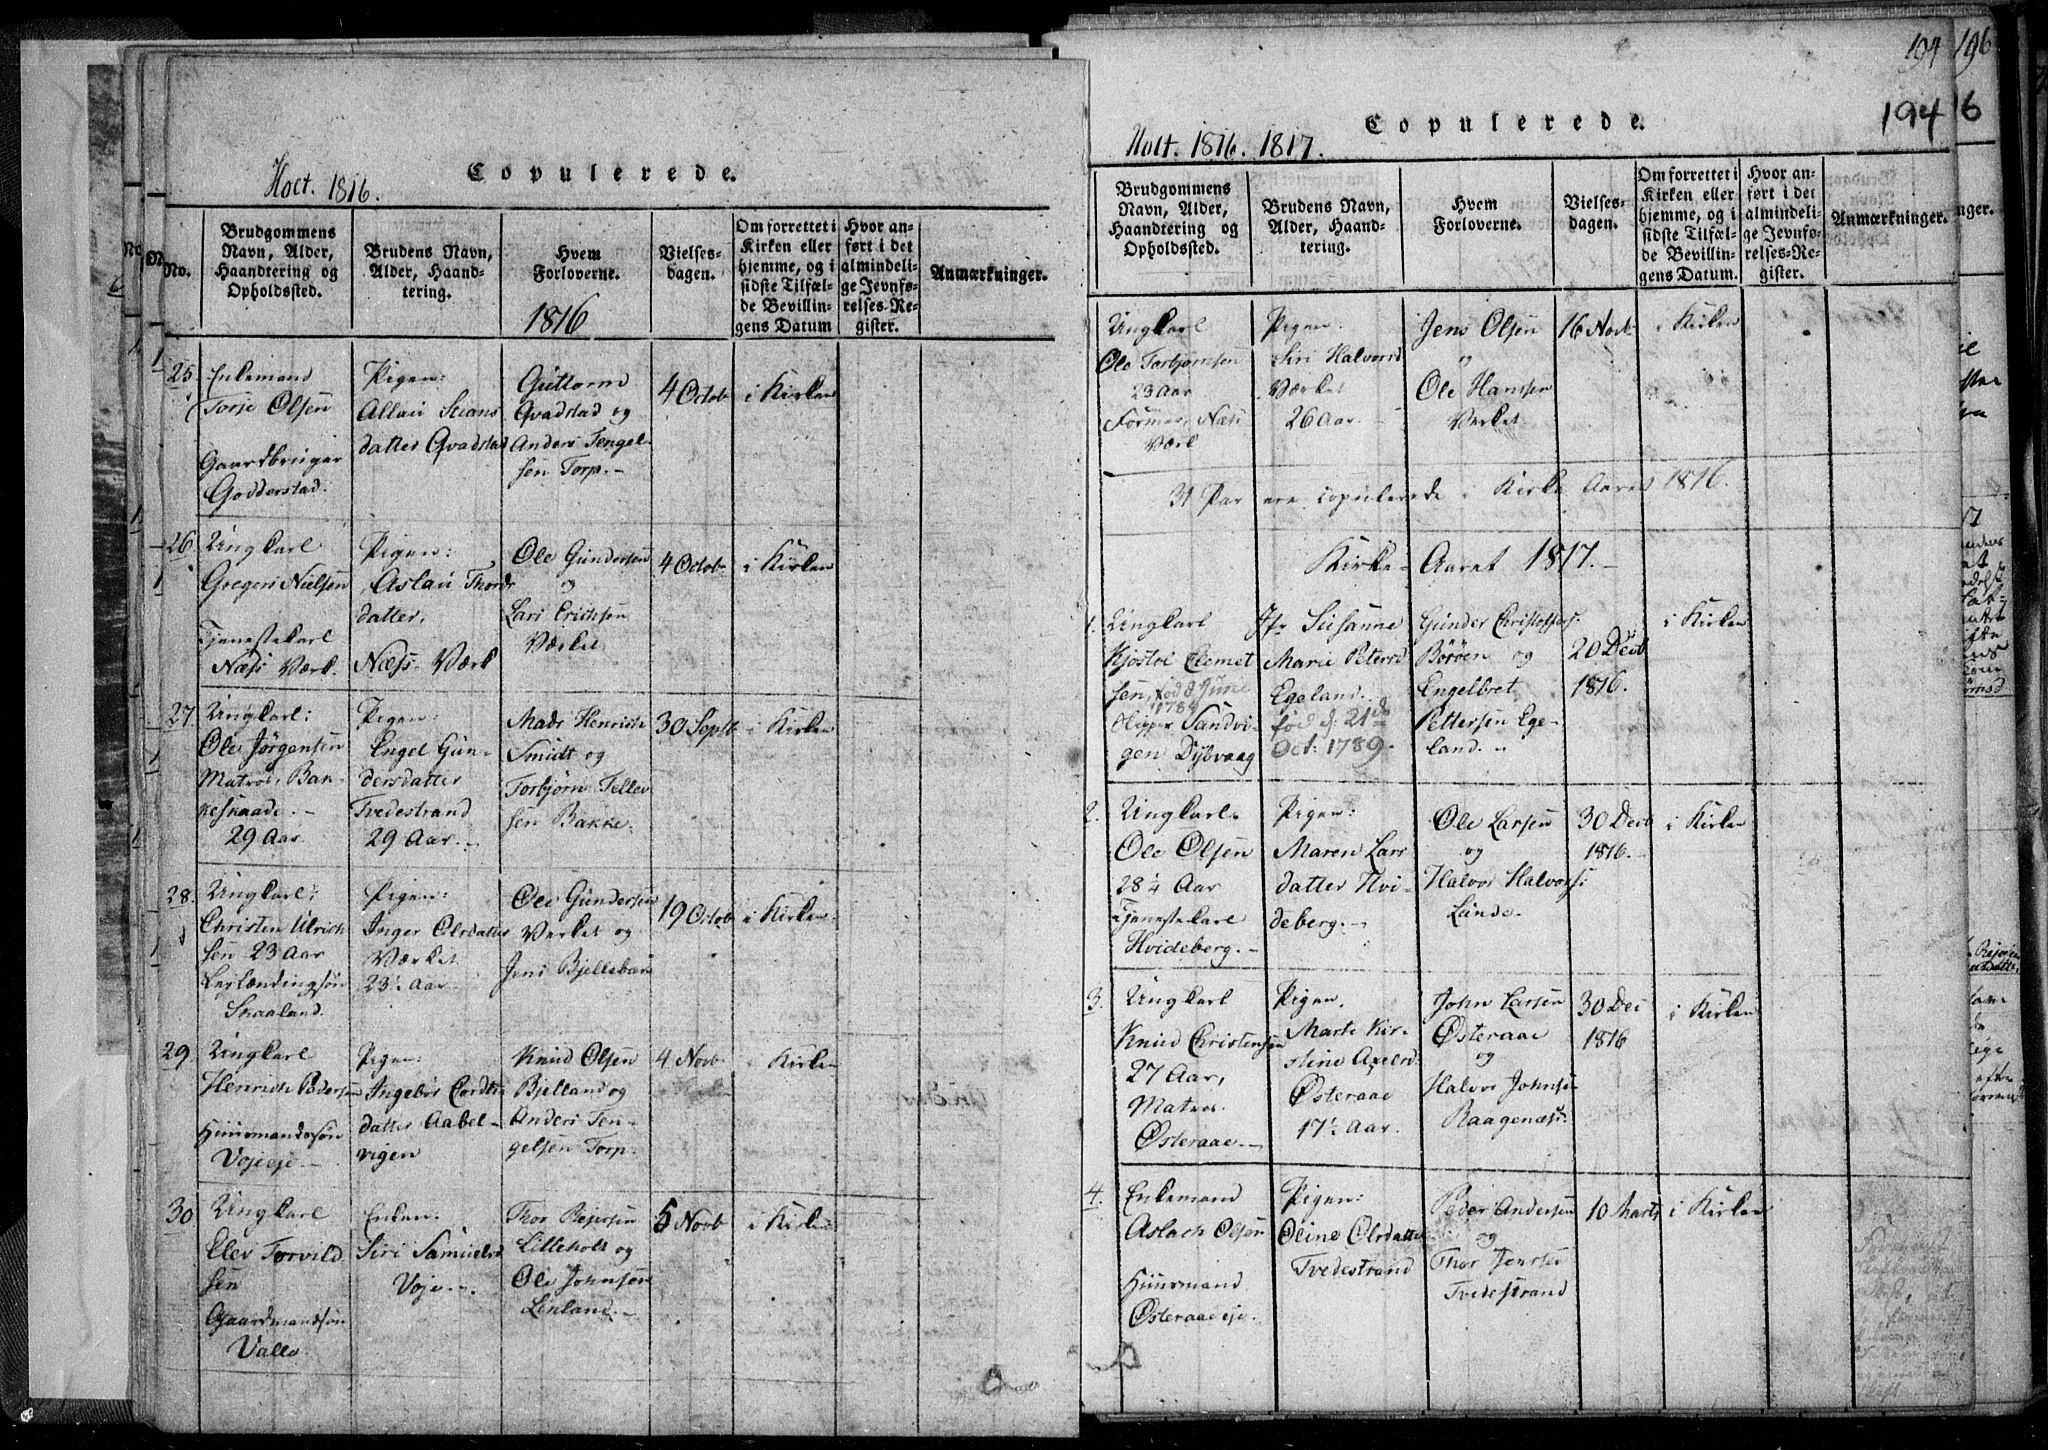 Holt. 1816.
Copulerede.
No.
Brudgommens
Navn, Alder,
Haandtering og
Opholdssted.
Brudens Navn,
Alder, Haand-
tering.
Hvem
Forloverne.
1816
Vielses-
dagen.
Om forrettet i
Kirken eller
hjemme, og i
sidste Tilfæl-
de Bevillin-
gens Datum
Hvor an-
ført i det
almindeli-
ge Jevnfø-
relses-Re-
gister.
Anmærkninger.
25.
Enkemand
Torje Olsen
Gaardbruger
Godderstad.
Pigen:
datter Qvadstad
Guttorm
Qvadstad og
Anders Tengel-
sen Torp.-
4 Octob
i Kirken
26
Ungkarl
Gregers Nielsen
Tjenestekarl
Næss Værk.
Pigen:
Aslau Thords
datter,
Næss- Værk
Ole Gundersen
og
Lars Erichsen
Værket
4 Octob
i Kirken
27.
Ungkarl:
Ole Jørgensen
Matros, Ban-
keskaade.-
29 Aar
Pigen:
Engel Gun-
dersdatter
Tvedestrand
29 Aar.-
Mads Henrich
Smidt og
Torbjørn Tellev
sen Bakke.
30 Septb
i Kirken
28.
Ungkarl:
Christen Ulrich
sen 23 Aar
Skaaland.
Pigen:
Inger Olsdatter
Værket
23½ Aar
Ole Gundersen
Verket og
19 Octob
i Kirken
29
Ungkarl
Henrich Pedersen
Huusmandssøn
Vojeeje
Pigen:
datter Aabel-
vigen
Knud Olsen
Bjelland og
Anders Ten-
gelsen Torp.
4 Novb
i Kirken
30
Ungkarl
Elev Torvild
sen
Gaardmandssøn
Valle
Enken:
Siri Samuelsd
Voje.
Lilleholt og
Ole Johnsen
Lenland.-
5 Novb
i Kirken
194
196
194
6
Copulerede.
Holt. 1816. 1817.
Brudgommens
Navn, Alder,
Haandtering og
Opholdssted.
Brudens Navn,
Alder, Haand-
tering.
Hvem
Forloverne.
Vielses-
dagen.
Om forrettet i
Kirken eller
hjemme, og i
sidste Tilfæl-
de Bevillin-
gens Datum.
Hvor an-
ført i det
almindeli-
ge Jevnfø-
relses-Re-
gister.
Anmærkninger.
Ungkarl
Ole Torbjørnsen
23 Aar
Former, Næss
Værk
Pigen:
Siri Halvorsd
Værket
26 Aar.
Jens Olsen
og
Ole Hansen
Verket
16 Novb
i Kirken
31 Par ere copulerede i Kirke Aaret 1816.
Kirke-Aaret 1817.-
1.
Ungkarl
Kjostol Clemet
sen, fød 8 Juni
1784
Skipper Sandvi-
gen Dybvaag
Jfr Susanne
Marie Petersd
Egeland.
fød d: 21de
Oct: 1789.
Gunder Christophers.
Borøen og
Engelbret
Pettersen Ege-
land.
20 Decb
1816.
i Kirken
2.
Ungkarl.
Ole Olsen
28¼ Aar
Tjenestekarl
Hvideberg.-
Pigen:
Maren Lars
datter Hvi-
deberg.-
Ole Larsen
og
Halvor Halvors:
Lunde.
30 Decb
1816.-
i Kirken
3.
Ungkarl
Knud Christensen
27 Aar,
Matros
Østeraae.-
Pigen.
Marte Kir-
stine Axelsd.
Østeraae
17½ Aar.
John Larsen
Østeraae
og
Halvor Johnsen
Raagenæs:
30 Dec
1816
i Kirken
4.
Enkemand
Aslach Olsen
Huusmand
Østeraaeeje.
Pigen:
Oline Olsdatter
Tvedestrand
Peder Andersen
og
Thor Jensen
Tvedestrand
10 Marts
i Kirken